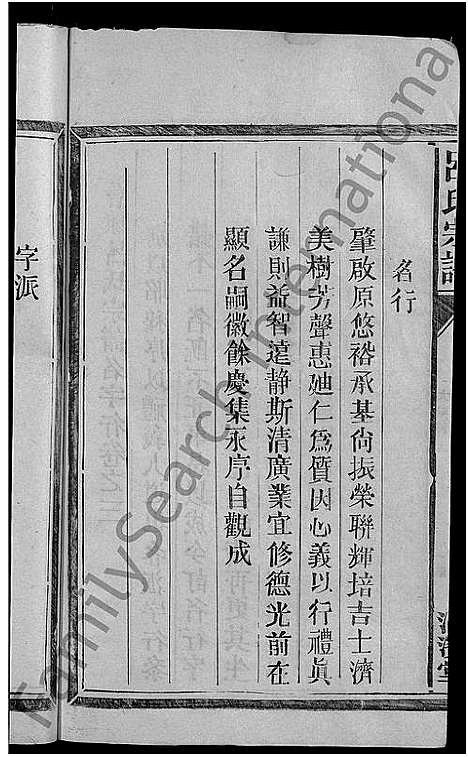 呂氏宗譜
名行
肇啟原悠裕承基尙振榮聯輝培吉士濟
美樹芳聲惠廸仁爲質因心義以行禮眞
謙則益智遠靜斯清廣業宜修德光前在
顯名嗣徽餘慶集永序自觀成
字派
FamilySearch International